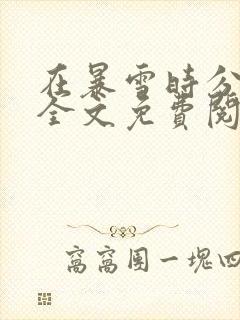 在暴雪時分
全文免費閱
窩窩團一塊四